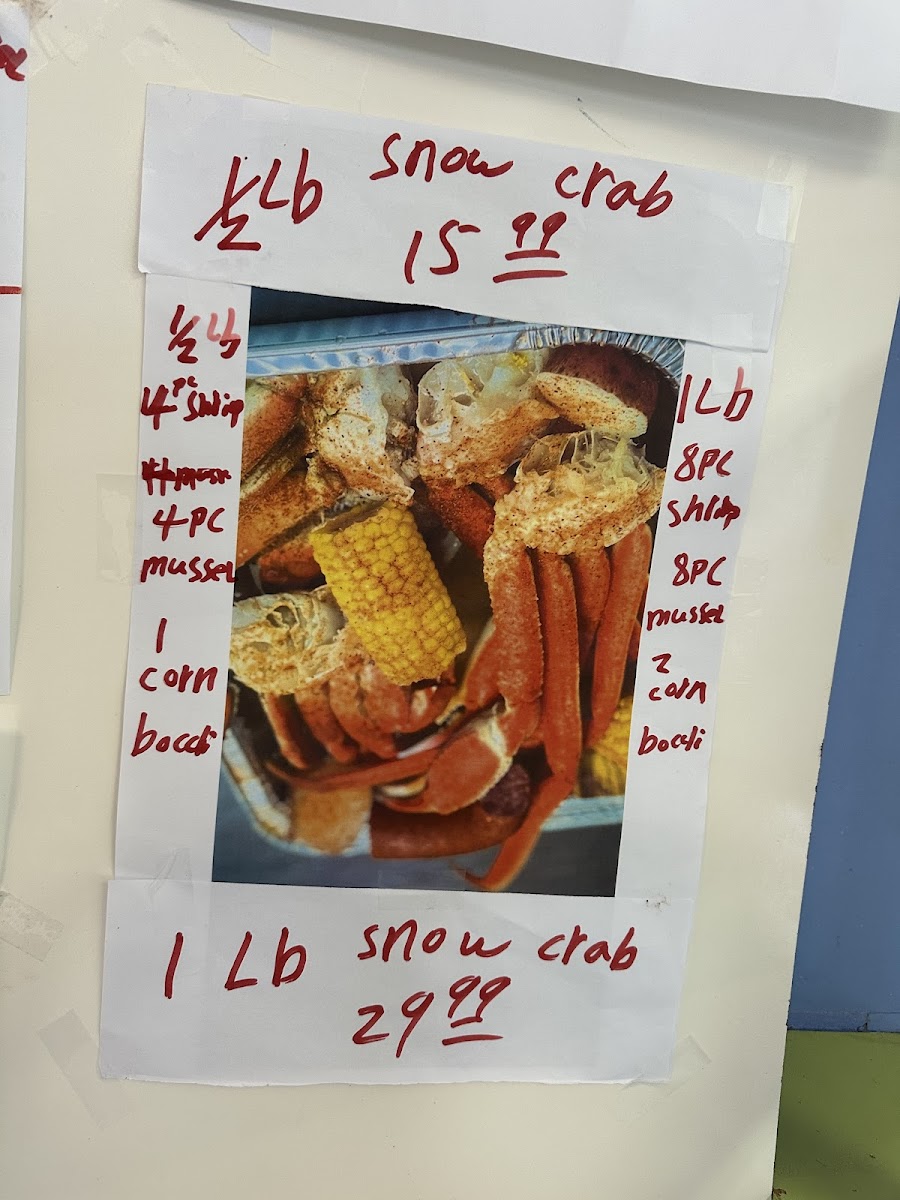 ½ Lb snow crab
15 99
½ Lb
4 PC Shrip
4 PC
mussel
1
corn
boccli
1 Lb
8 PC
shrip
8 PC
mussel
2
corn
boccli
1 Lb snow crab
29 99